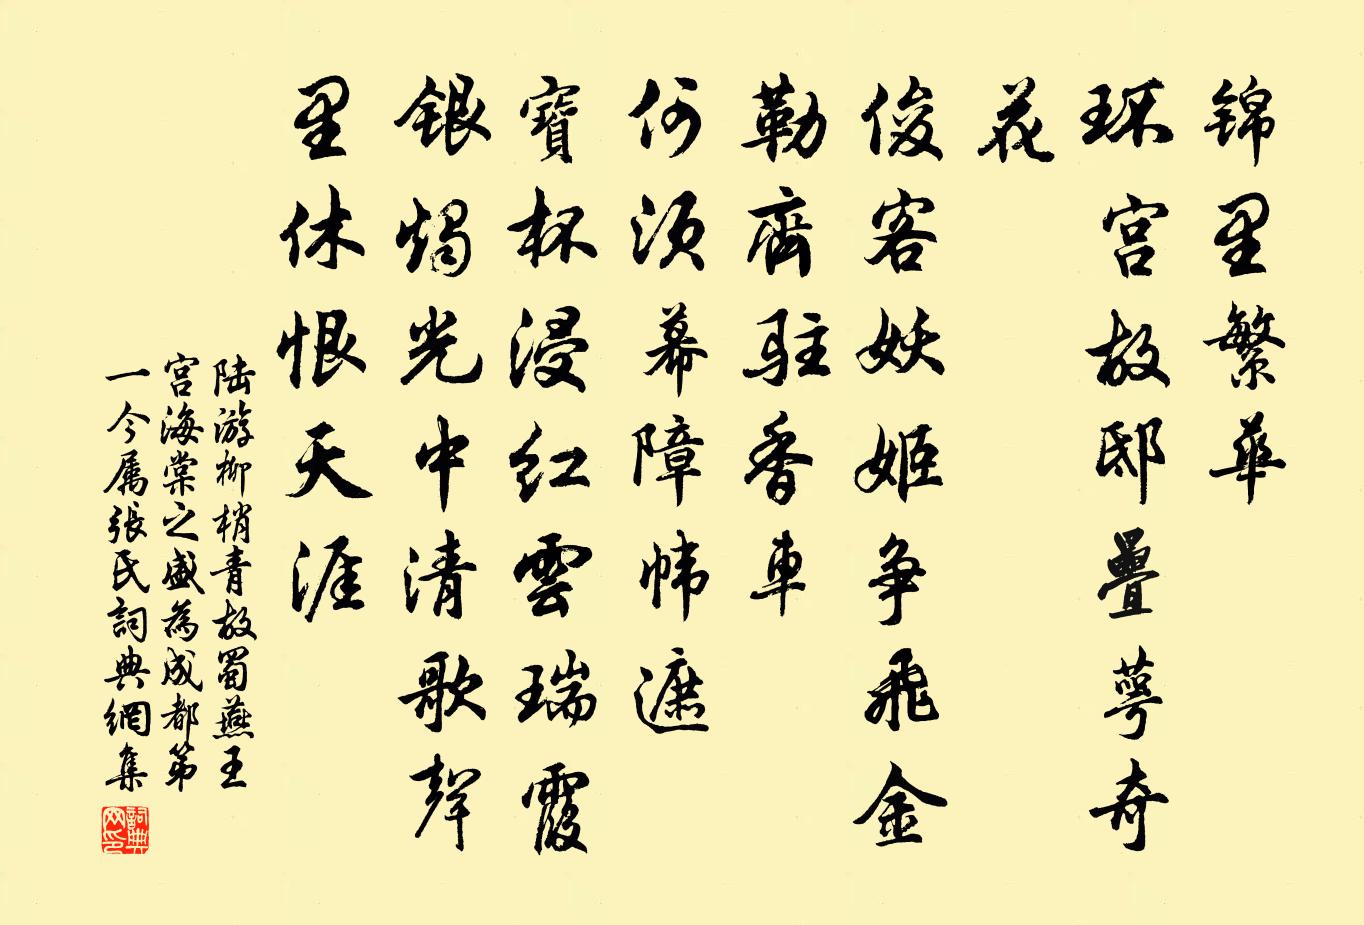 锦里繁華
環宫故邸疊萼奇
花
俊客妖姬争飛金
勒齊駐香車
何须幕障帏遮
寶杯浸红雲瑞霞
銀燭光中清歌聲
里休恨天涯
陆游柳梢青故蜀燕王
宫海棠之盛為成都第
一今属張氏詞典網集
詞典网印